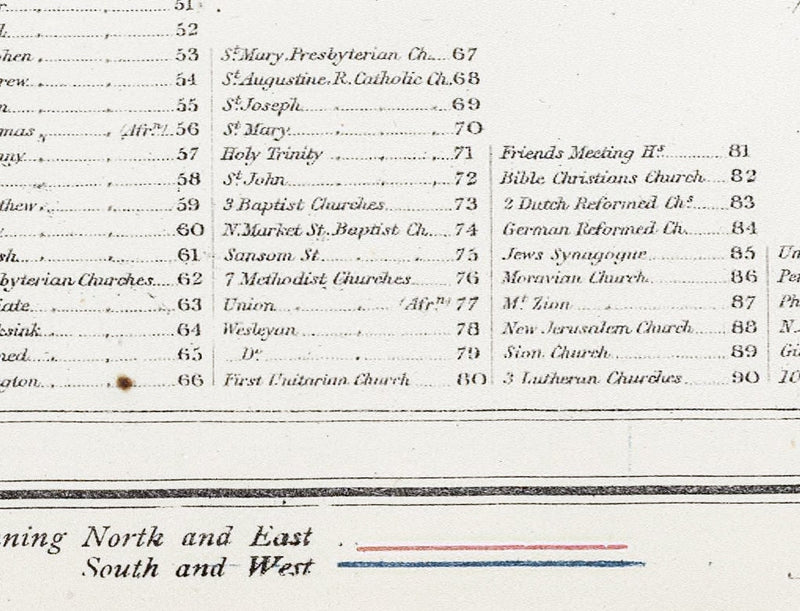 51
52
hen 53
rew 54
n 55
mas „ „ (Afrn.) 56
ny 57
58
thew 59
60
sh 61
byterian Churches 62
iate 63
ksink 64
med 65
gton 66
St. Mary. Presbyterian Ch. 67
St. Augustine. R. Catholic Ch. 68
St. Joseph 69
St. Mary 70
Holy Trinity 71
St. John 72
3 Baptist Churches 73
N. Market St. Baptist Ch. 74
Sansom St. 75
7 Methodist Churches 76
Union (Afrn.) 77
Wesleyan 78
Do. 79
First Unitarian Church 80
Friends Meeting Hs. 81
Bible Christians Church 82
2 Dutch Reformed Chs. 83
German Reformed Ch. 84
Jews Synagogue 85
Moravian Church 86
Mt. Zion 87
New Jerusalem Church 88
Sion Church 89
3 Lutheran Churches 90
Un
Pe
Ph
N.
Gi
10
ning North and East
South and West